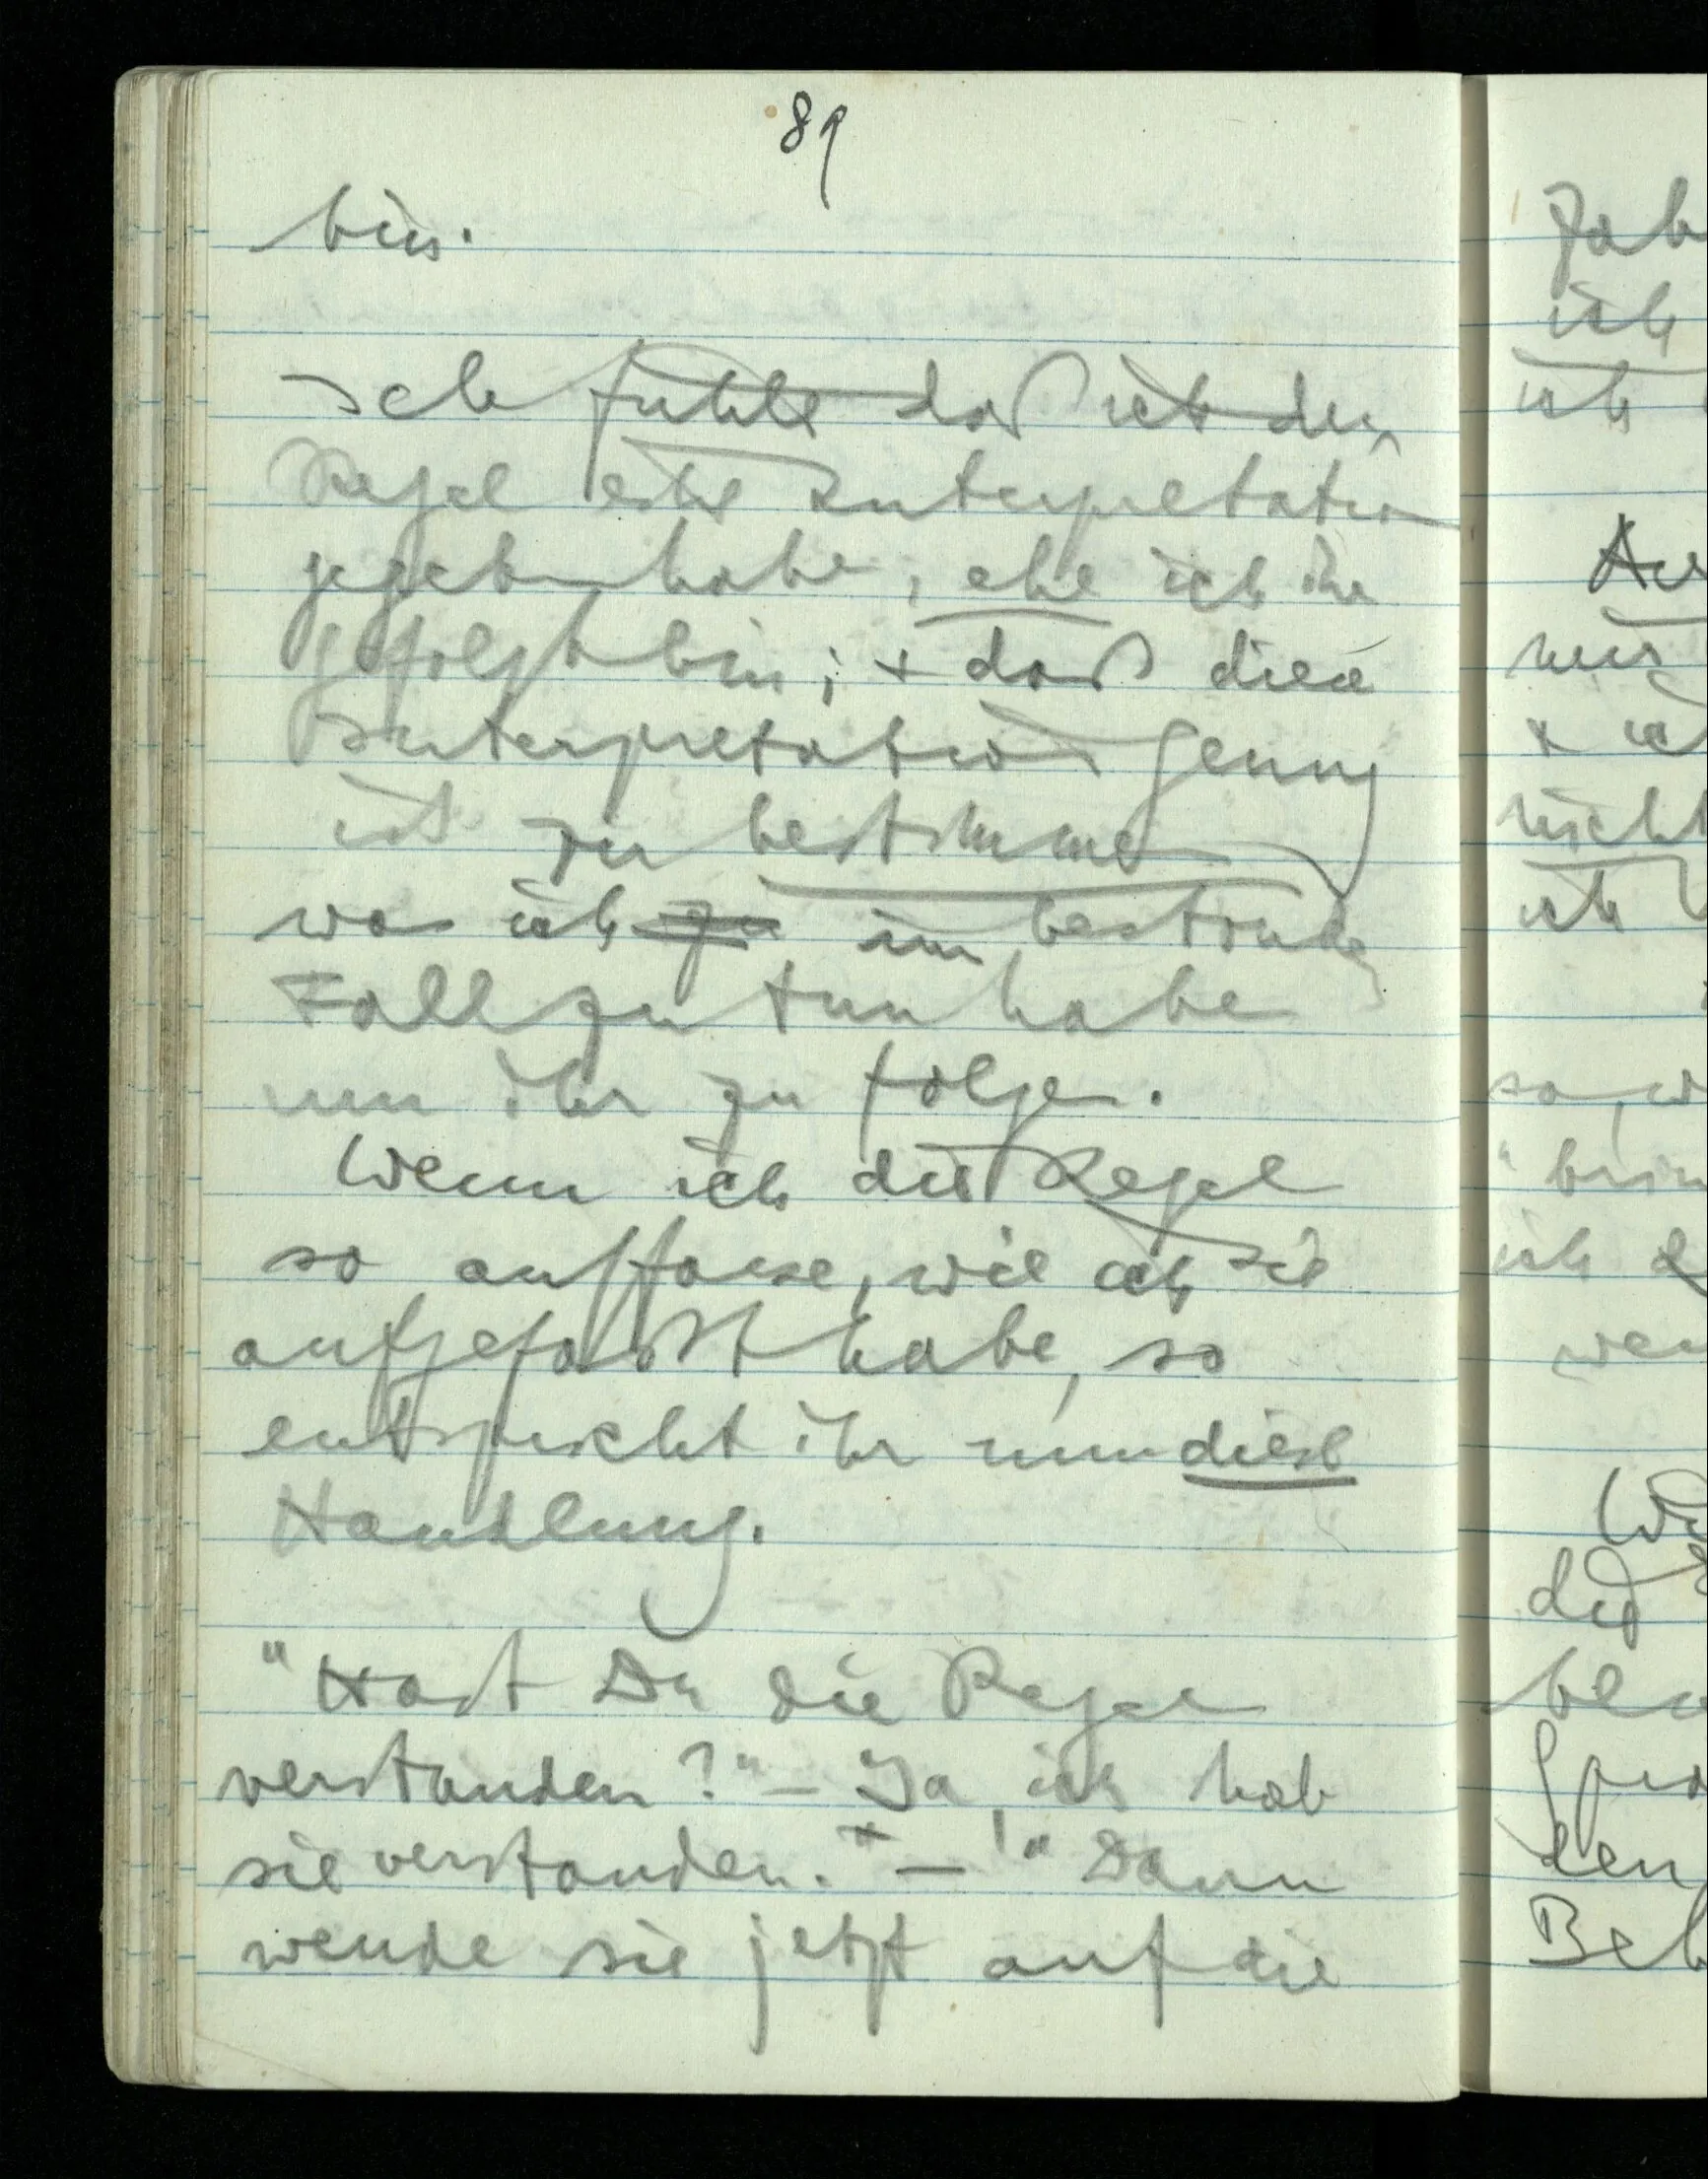 89
bin.
Ich fühle daß ich der
Regel eine Interpretation
gegeben habe, ehe ich ihr
gefolgt bin; + daß diese
Interpretation genug
ist zu bestimmen
was ich zu im bestimmten
Fall zu tun habe
um ihr zu folgen.
Wenn ich die Regel
so auffasse, wie ich sie
aufgefaßt habe, so
entspricht ihr nun diese
Handlung.
"Hast Du die Regel
verstanden?" – Ja, ich hab
sie verstanden." – "Dann
wende sie jetzt auf die
ich
ich
nicht
ich
ich